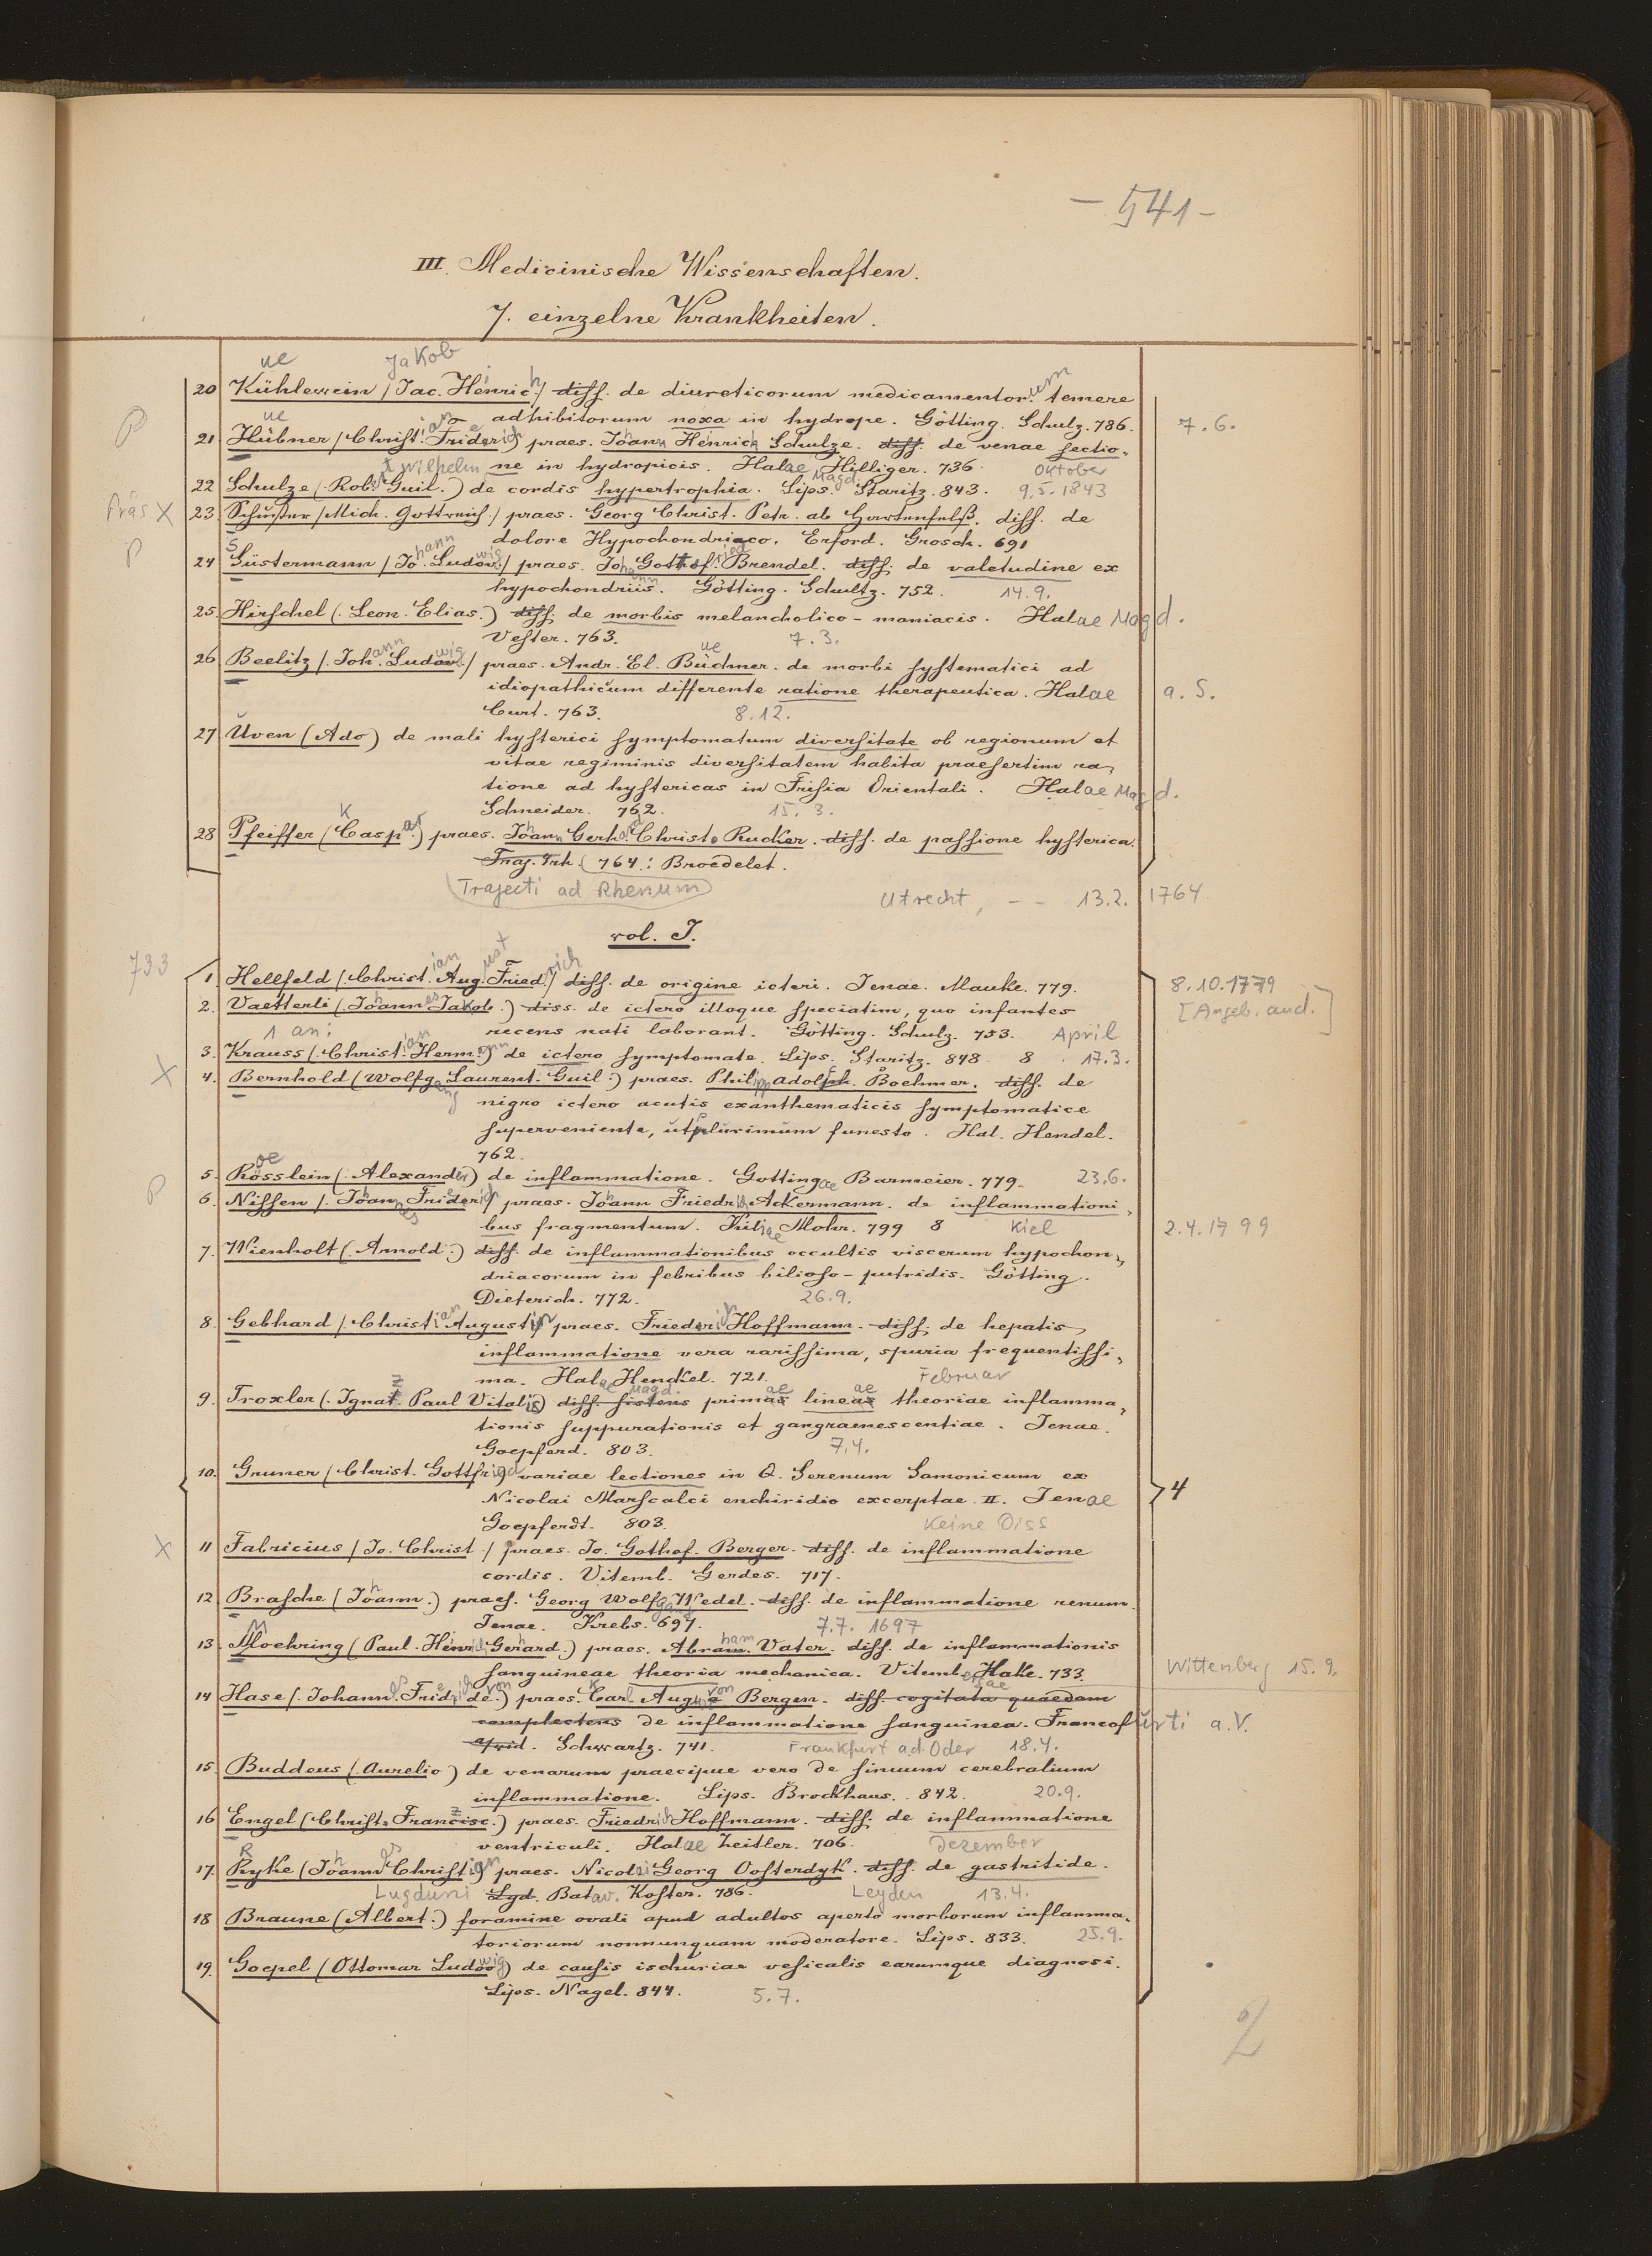 - 541 -
III. Medicinische Wissenschaften.
7. einzelne Krankheiten.
ue Jakob
20 Kühlewein /Jac. Heinrich/ diss. de diureticorum medicamentor.um temere
adhibitorum noxa in hydrope. Götting. Schulz. 786. 7.6.
P ue
21 Hübner /Christian Friderich/ praes. Johann Heinrich Schulze. diss. de venae sectio-
ne in hydropicis. Halae Magd. Hilliger. 736. Oktober
22 Schulze (Robert Wilhelm Guil.) de cordis hypertrophia. Lips. Staritz. 843. 9.5.1843
Präs X 23 Schuster /Mich. Gottreich/ praes. Georg Christ. Petr. ab Hartenfelß. diss. de
dolore Hypochondriaco. Erford. Grosch. 691
P 24 Süstermann /Johann Ludowig/ praes. Johann Gottfried Brendel. diss. de valetudine ex
hypochondriis. Götting. Schultz. 752. 14.9.
25. Hirschel (Leon. Elias.) diss. de morbis melancholico-maniacis. Halae Magd.
Vester. 763. 7.3.
26 Beelitz /Johann Ludowig/ praes. Andr. El. Büchner. de morbi systematici ad
idiopathicum differente ratione therapeutica. Halae a. S.
Curt. 763. 8.12.
27 Uven (Ado) de mali hysterici symptomatum diversitate ob regionum et
vitae regiminis diversitatem habita praesertim ra-
tione ad hystericas in Frisia Orientali. Halae Magd.
Schneider. 762. 15.3.
28 Pfeiffer (Caspar) praes. Johann Gerhard Christ. Rucker. diss. de passione hysterica.
Traj. Trh. (764.: Broedelet.
(Trajecti ad Rhenum) Utrecht, - - 13.2. 1764
vol. I.
733
1. Hellfeld (Christian August Friedrich/ diss. de origine icteri. Jenae. Mauke. 779. 8.10.1779
2. Vaetterli (Johannes Jakob.) diss. de ictero illoque speciatim, quo infantes [Angeb. aud.]
1 an: recens nati laborant. Götting. Schulz. 753. April
3. Krauss (Christian Hermann) de ictero symptomate. Lips. Staritz. 848. 8 17.3.
X 4. Bernhold (Wolfgang Laurent. Guil.) praes. Philipp Adolph. Boehmer. diss. de
nigro ictero acutis exanthematicis symptomatice
superveniente, ut plurimum funesto. Hal. Hendel.
762.
5. Rösslein (Alexander) de inflammatione. Gottingae Barmeier. 779. 23.6.
P 6. Nissen /Johannes Friederich praes. Johann Friedrich Ackermann. de inflammationi-
bus fragmentum. Kiliae Mohr. 799 8 Kiel 2.4.1799
7. Wienholt (Arnold.) diss. de inflammationibus occultis viscerum hypochon-
driacorum in febribus bilioso-putridis. Götting.
Dieterich. 772. 26.9.
8. Gebhard /Christian Augustin praes. Friedrich Hoffmann. diss. de hepatis
inflammatione vera rarissima, spuria frequentissi-
ma. Halae Magd. Henckel. 721. Februar
9. Troxler (Ignaz Paul Vitalis) diss. sistens primae lineae theoriae inflamma-
tionis suppurationis et gangraenescentiae. Jenae.
Goepferd. 803. 7.4.
10. Gruner /Christ. Gottfried variae lectiones in Q. Serenum Samonicum ex 4
Nicolai Marscalci enchiridio excerptae. II. Jenae
Goepferdt. 803. Keine Diss
X 11 Fabricius /Jo. Christ./ praes. Jo. Gothof. Berger. diss. de inflammatione
cordis. Vitemb. Gerdes. 717.
12 Brasche (Johann.) praes. Georg Wolfgang Wedel. diss. de inflammatione renum.
Jenae. Krebs. 697. 7.7. 1697
13 Moehring (Paul Heinrich Gerhard.) praes. Abraham Vater. diss. de inflammationis
sanguineae theoria mechanica. Vitembergae Hake. 733. Wittenberg 15.9.
14 Hase (Johannes Friedrich de von) praes. Karl August von Bergen. diss. cogitata quaedam
complectens de inflammatione sanguinea. Francofurti a.V.
a/vid. Schwartz. 741. Frankfurt a.d. Oder 18.4.
15. Buddeus (Aurelio) de venarum praecipue vero de sinuum cerebralium
inflammatione. Lips. Brockhaus. 842. 20.9.
16 Engel (Christ. Francisc.) praes. Friedrich Hoffmann. diss. de inflammatione
ventriculi. Halae Zeitler. 706. Dezember
17. Ryke (Johannes Christian praes. Nicolai Georg Oosterdyk. diss. de gastritide.
Lugduni Lgd. Batav. Koster. 786. Leyden 13.4.
18 Braune (Albert.) foramine ovali apud adultos aperto morborum inflamma-
toriorum nonnunquam moderatore. Lips. 833. 25.9.
19. Goepel (Ottomar Ludowig) de causis ischuriae vesicalis earumque diagnosi.
Lips. Nagel. 844. 5.7.
2